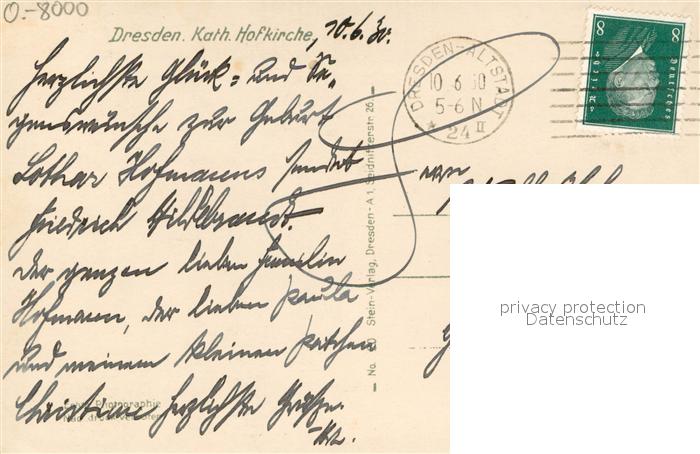 O.-8000
Dresden. Kath. Hofkirche, 10.6.30.
Herzlichste Glück= und Se„
genswünsche zur Geburt
Lothar Hofmanns sendet
Friedrich Hildebrandt.
Der ganzen lieben Familie
Hofmann, der lieben Paula
und meinem kleinen Patchen
Christine herzlichste Grüße.
DRESDEN-ALTSTADT
10.6.30
5-6 N
* 24 II
8 8
Deutsches Reich
Stein-Verlag, Dresden-A 1, Seidnitzerstr 26
privacy protection
Datenschutz